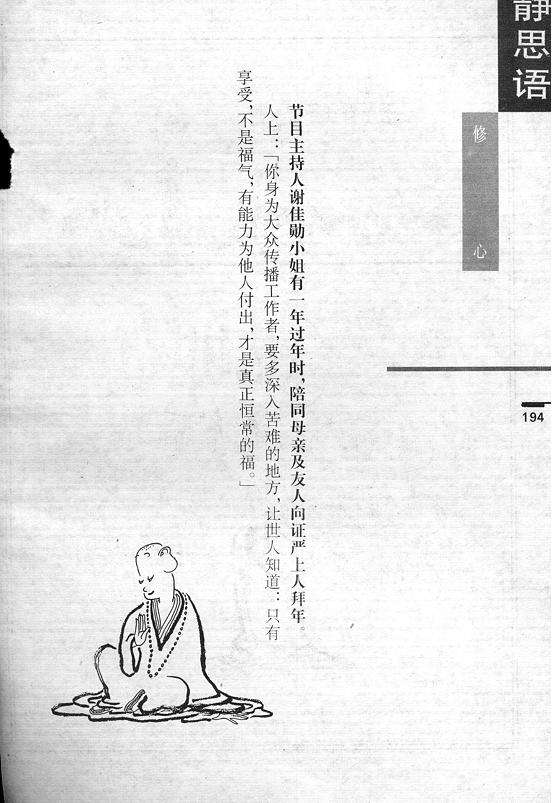 静思语
修心
194
节目主持人谢佳勋小姐有一年过年时，陪同母亲及友人向证严上人拜年。
人上：「你身为大众传播工作者，要多深入苦难的地方，让世人知道：只有
享受，不是福气，有能力为他人付出，才是真正恒常的福。」